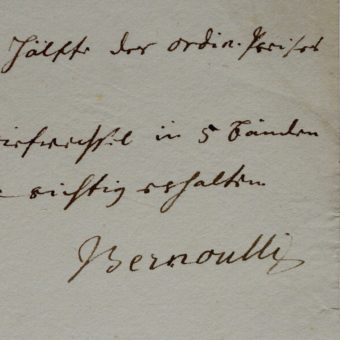 Hälfte des ordin. Preises
riefwechsel in 5 Bänden
richtig erhalten
Bernoulli